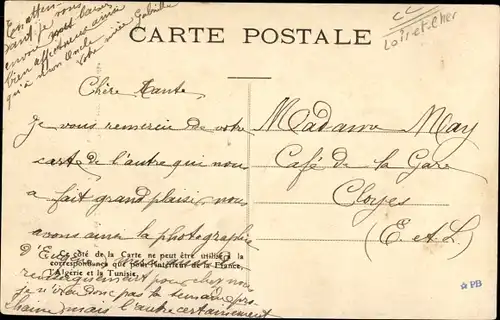 En attendant je vous
envoie
bien affectueux ainsi
qu'à mon Oncle
Votre nièce Gabrielle
CARTE POSTALE
Loir-et-Cher
Chère Tante,
Je vous remercie de votre
carte de l'autre qui nous
a fait grand plaisir, nous
avons aimé la photographie
D'Eugène
Ce côté de la Carte ne peut être utilisé à la
correspondance que pour l'intérieur de la France,
l'Algérie et la Tunisie.
pour chez nous
je n'irai donc pas la semaine prochaine
mais l'autre certainement
Madame May
Café de la Gare
Cloyes
(E. et L.)
PB